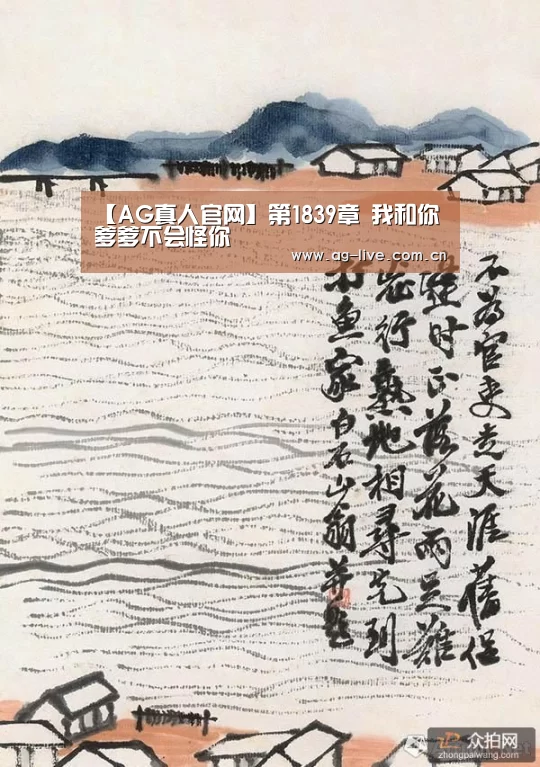 【AG真人官网】第1839章 我和你
爹爹不会怪你
www.ag-live.com.cn
不為官吏走天涯舊侶
時正落花兩足難
行熟地相尋完到
打魚家白石山翁并題
众拍网
zhongpaiwang.com